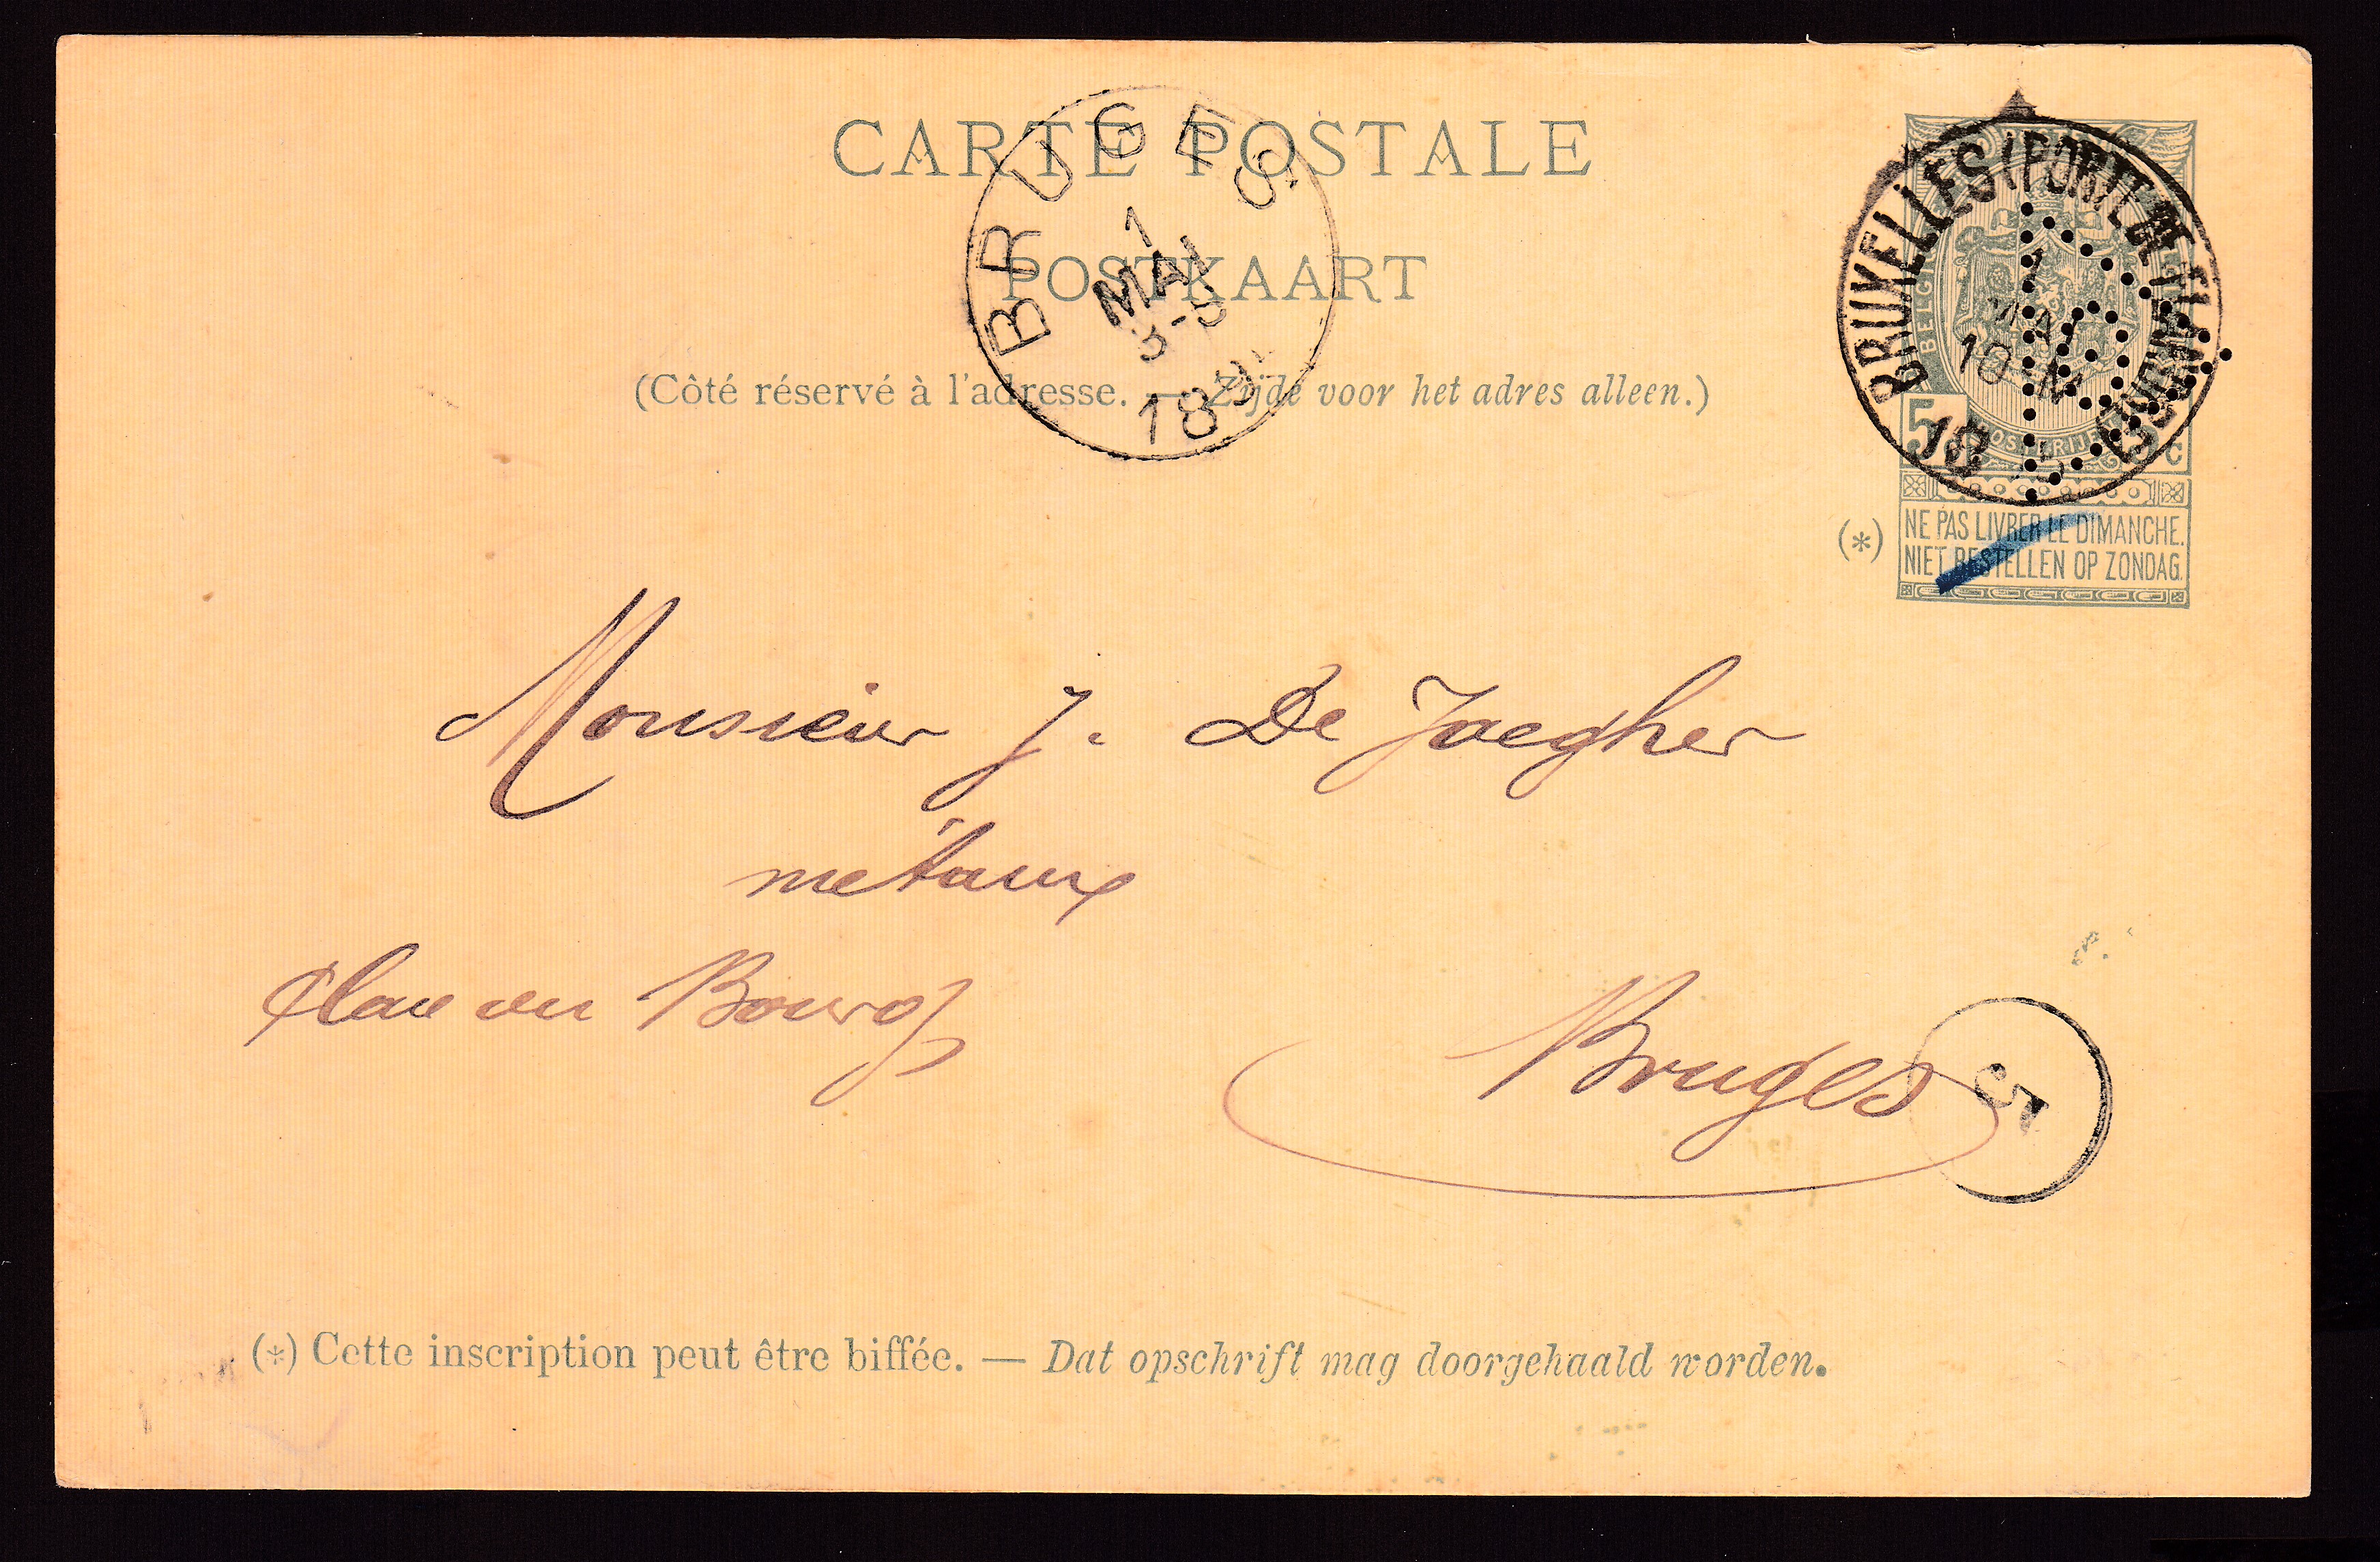 CARTE POSTALE
POSTKAART
(Côté réservé à l'adresse. — Zijde voor het adres alleen.)
BRUGES
1
MAI
18
BRUXELLES (PORTE DE FLANDRE)
1
MAI
10-M
18
BELG
5
C
(*)
NE PAS LIVRER LE DIMANCHE.
NIET BESTELLEN OP ZONDAG.
Monsieur J. De Jaegher
métaux
Place du Bourg
Bruges
5
(*) Cette inscription peut être biffée. — Dat opschrift mag doorgehaald worden.